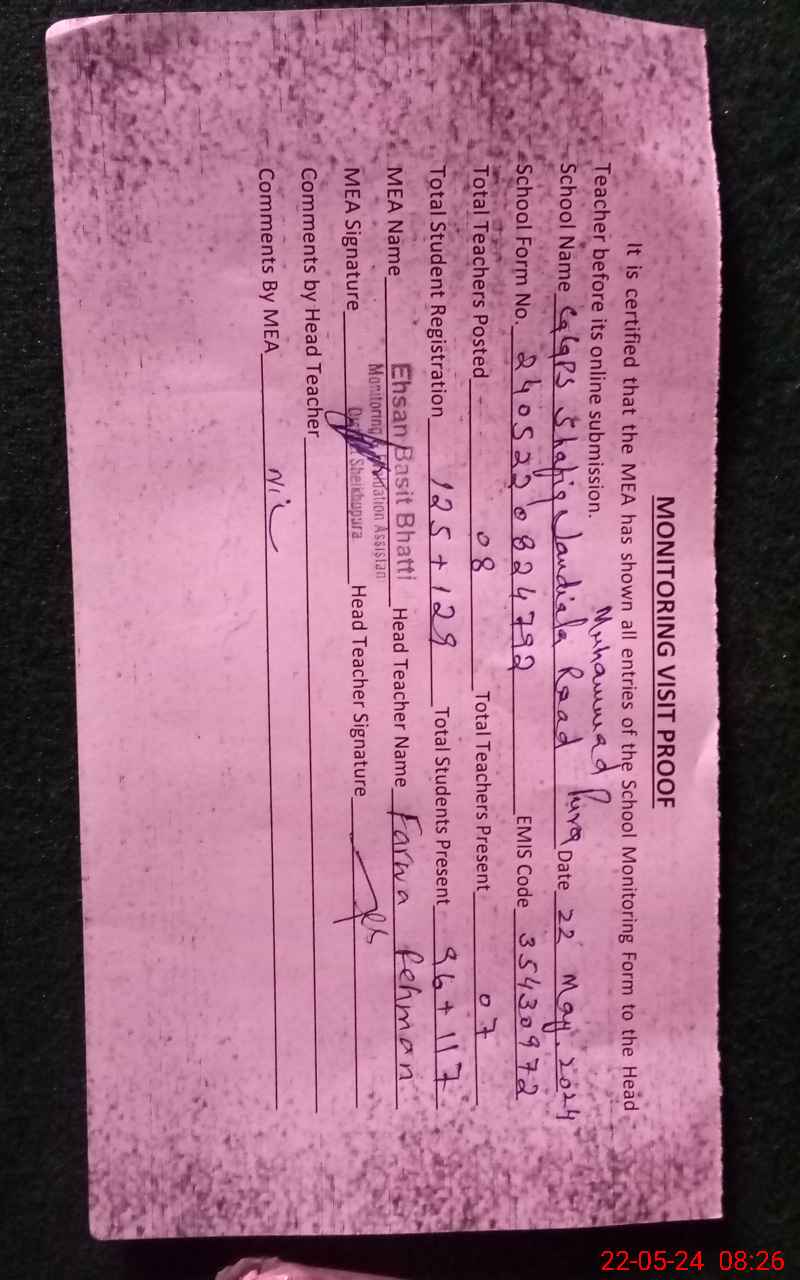 MONITORING VISIT PROOF
It is certified that the MEA has shown all entries of the School Monitoring Form to the Head
Teacher before its online submission.
Muhammad Pura
School Name Shafiq Jandiala Road Date 22 May, 2024
School Form No. 2405220824792 EMIS Code 35430972
Total Teachers Posted 08 Total Teachers Present 07
Total Student Registration 125 + 129 Total Students Present 96 + 117
MEA Name Ehsan Basit Bhatti Head Teacher Name Farwa Rehman
Monitoring Assistan
MEA Signature Sheikhupura Head Teacher Signature
Comments by Head Teacher
Comments By MEA Nil
22-05-24 08:26